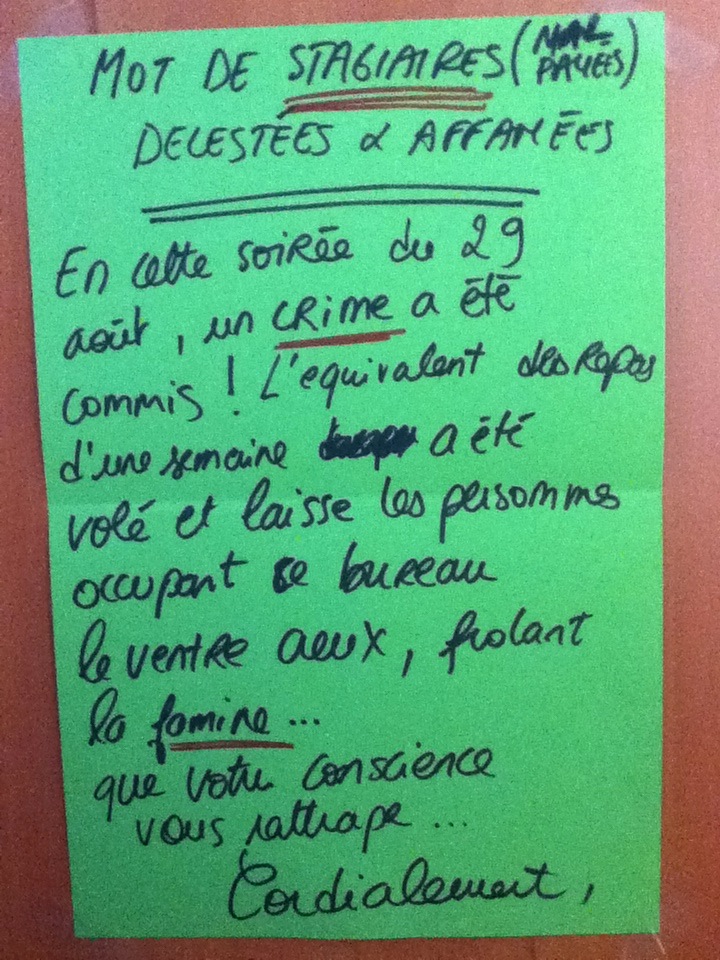 MOT DE STAGIAIRES (MAL PAYÉES)
DELESTÉES & AFFAMÉES
En cette soirée du 29
août, un CRIME a été
commis ! L'equivalent des Repas
d'une semaine a été
volé et laisse les personnes
occupant ce bureau
le ventre creux, frolant
la famine...
que votre conscience
vous rattrape...
Cordialement,